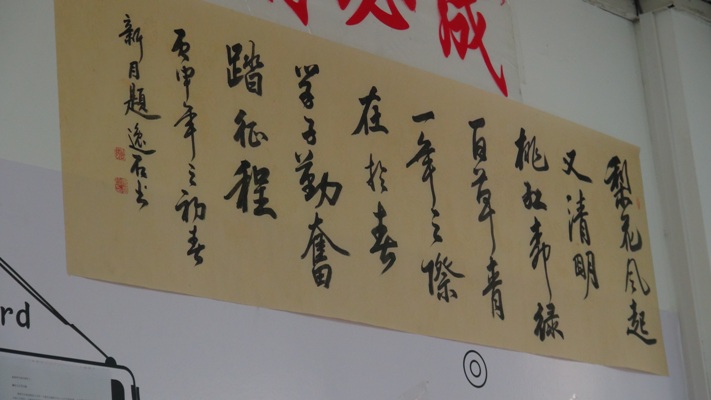 成
梨花风起
又清明
桃红柳绿
百草青
一年之際
在於春
学子勤奮
踏征程
丙申年之初春
新月題 逸石书
rd